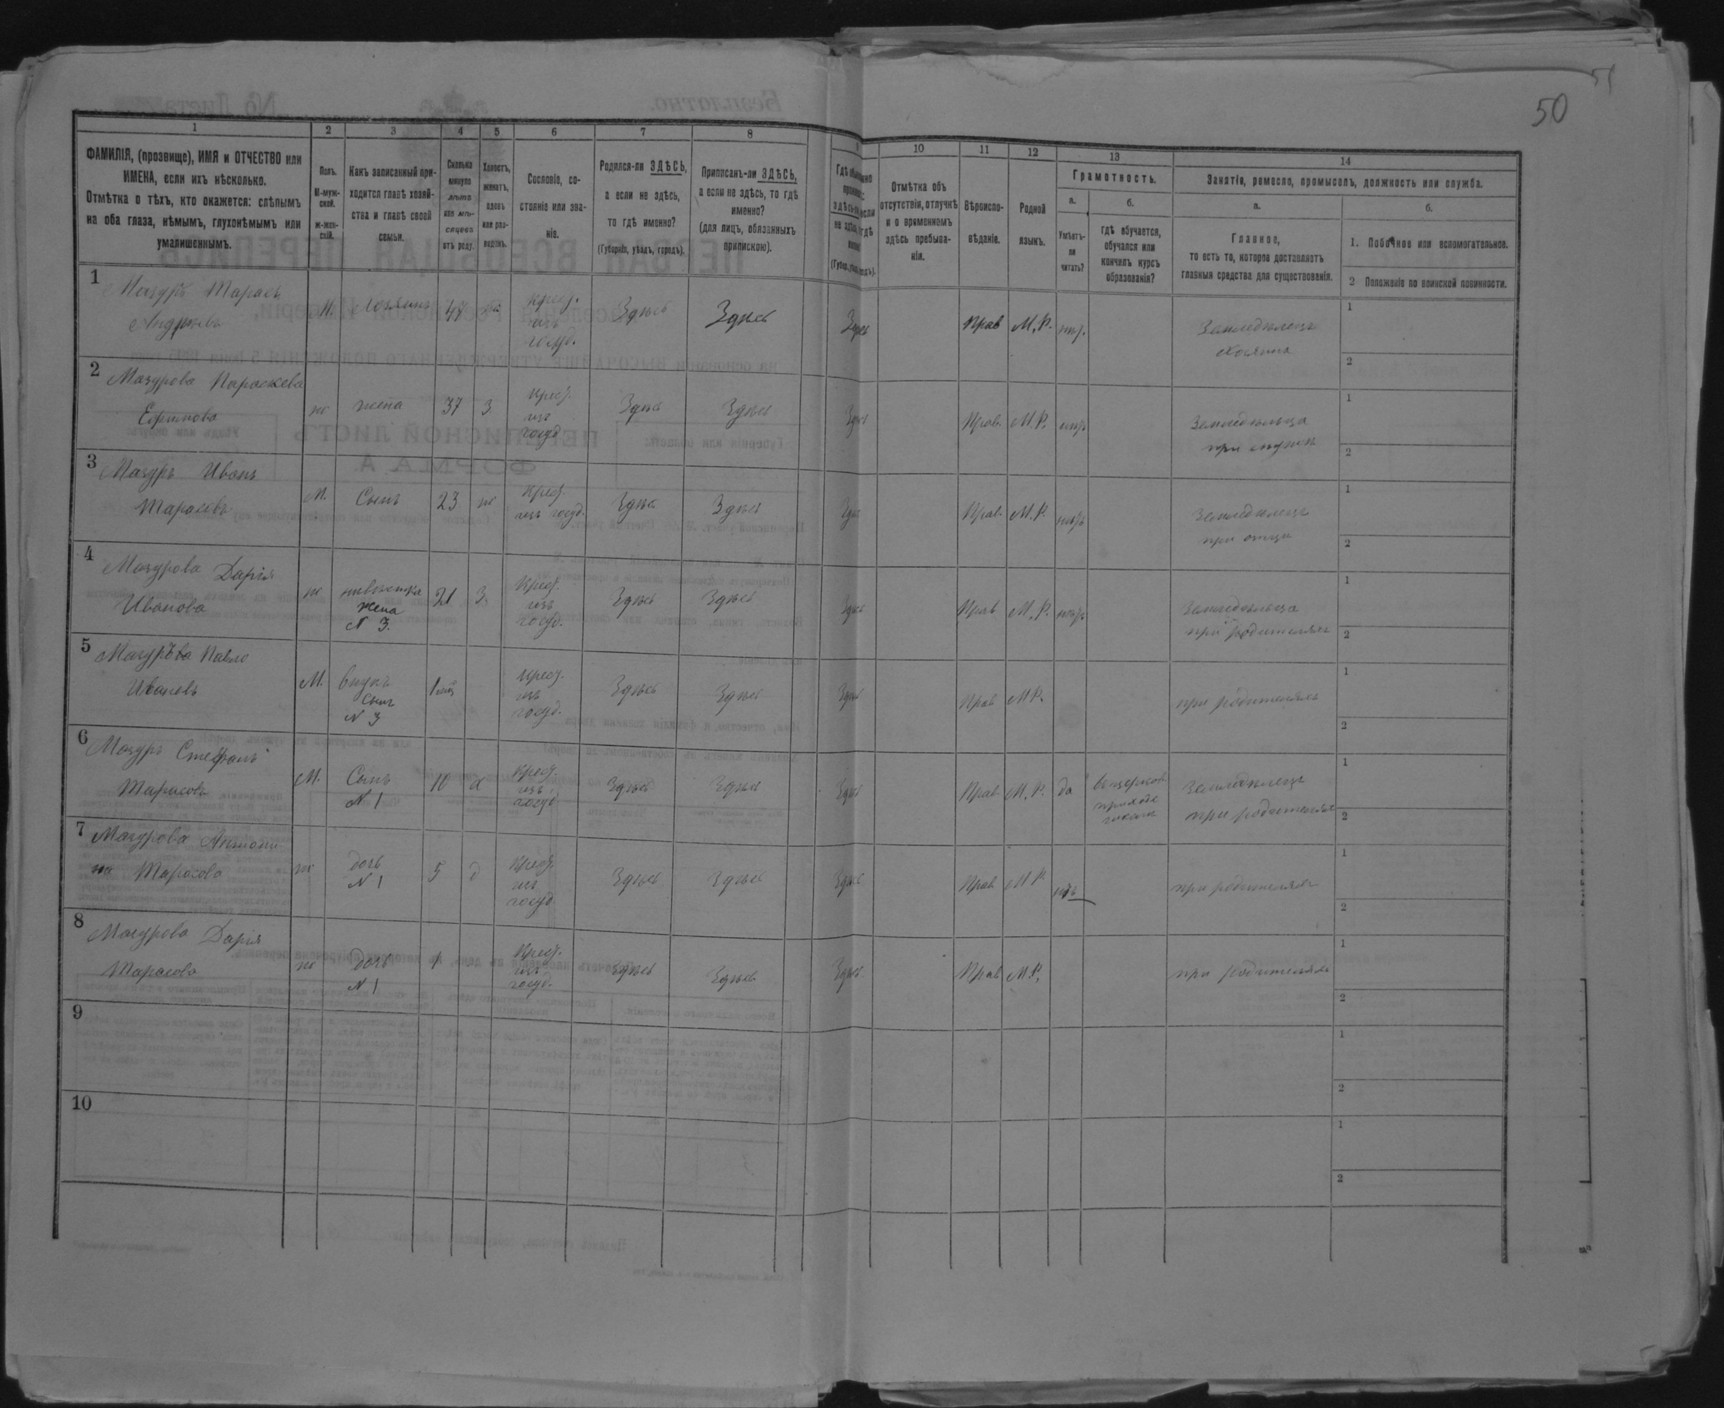 50
51
1
2
3
4
5
6
7
8
ФАМИЛІЯ, (прозвище), ИМЯ и ОТЧЕСТВО или
ИМЕНА, если ихъ нѣсколько.
Отмѣтка о тѣхъ, кто окажется: слѣпымъ
на оба глаза, нѣмымъ, глухонѣмымъ или
умалишеннымъ.
Полъ.
М-муж-
ской.
ж-жен-
скій.
Какъ записанный при-
ходится главѣ хозяй-
ства и главѣ своей
семьи.
Сколько
минуло
лѣтъ
или мѣ-
сяцевъ
отъ роду.
Холостъ,
женатъ,
вдовъ
или раз-
веденъ.
Сословіе, со-
стояніе или зва-
ніе.
Родился-ли ЗДѢСЬ,
а если не здѣсь,
то гдѣ именно?
(Губернія, уѣздъ, городъ).
Приписанъ-ли ЗДѢСЬ,
а если не здѣсь, то гдѣ
именно?
(для лицъ, обязанныхъ
припискою).
10
11
12
13
14
Отмѣтка объ
отсутствіи, отлучкѣ
и о временномъ
здѣсь пребыва-
ніи.
Вѣроиспо-
вѣданіе.
Родной
языкъ.
Грамотность.
а.
Умѣетъ-
ли
читать?
б.
гдѣ обучается,
обучался или
кончилъ курсъ
образованія?
Занятіе, ремесло, промыселъ, должность или служба.
а.
Главное,
то есть то, которое доставляетъ
главныя средства для существованія.
б.
1. Побочное или вспомогательное.
2 Положеніе по воинской повинности.
1
Мазуръ Тарасъ
Андреевъ
М.
хозяинъ
крест.
изъ
госуд.
Здѣсь
Здѣсь
Здѣсь
Прав
М.Р.
Земледѣлецъ
хозяинъ
1
2
2
Мазурова Параскева
Ефимова
ж
жена
37
з
Крест.
изъ
госуд
Здѣсь
Здѣсь
Здѣсь
Прав.
М.Р.
Земледѣлица
при мужѣ
1
2
3
Мазуръ Иванъ
Тарасовъ
М.
Сынъ
23
ж
Крест.
изъ госуд.
Здѣсь
Здѣсь
Здѣсь
Прав.
М.Р.
Земледѣлецъ
при отцѣ
1
2
4
Мазурова Дарія
Иванова
ж
невѣстка
жена
N 3.
21
З.
Крест.
изъ
госуд.
Здѣсь
Здѣсь
Здѣсь
Прав
М.Р.
Земледѣлица
при родителях
1
2
5
Иванов
М.
внукъ
сынъ
N 3
Крест.
изъ
госуд.
Здѣсь
Здѣсь
Здѣсь
Прав
М.Р.
при родителях
1
2
6
Мазуръ Стефанъ
Тарасовъ
М.
Сынъ
N 1
10
х
Крест.
изъ
госуд
Здѣсь
Здѣсь
Здѣсь
Прав.
М.Р.
да
Земледѣлецъ
при родителях
1
2
7
Мазурова Антони
на Тарасова
ж
дочь
N 1
5
д
Крест.
изъ
госуд
Здѣсь
Здѣсь
Здѣсь
Прав.
М.Р.
при родителях
1
2
8
Мазурова Дарія
Тарасова
ж
Дочь
N 1
1
Крест.
изъ
госуд.
Здѣсь
Здѣсь
Здѣсь
Прав
М.Р.
при родителях
1
2
9
1
2
10
1
2